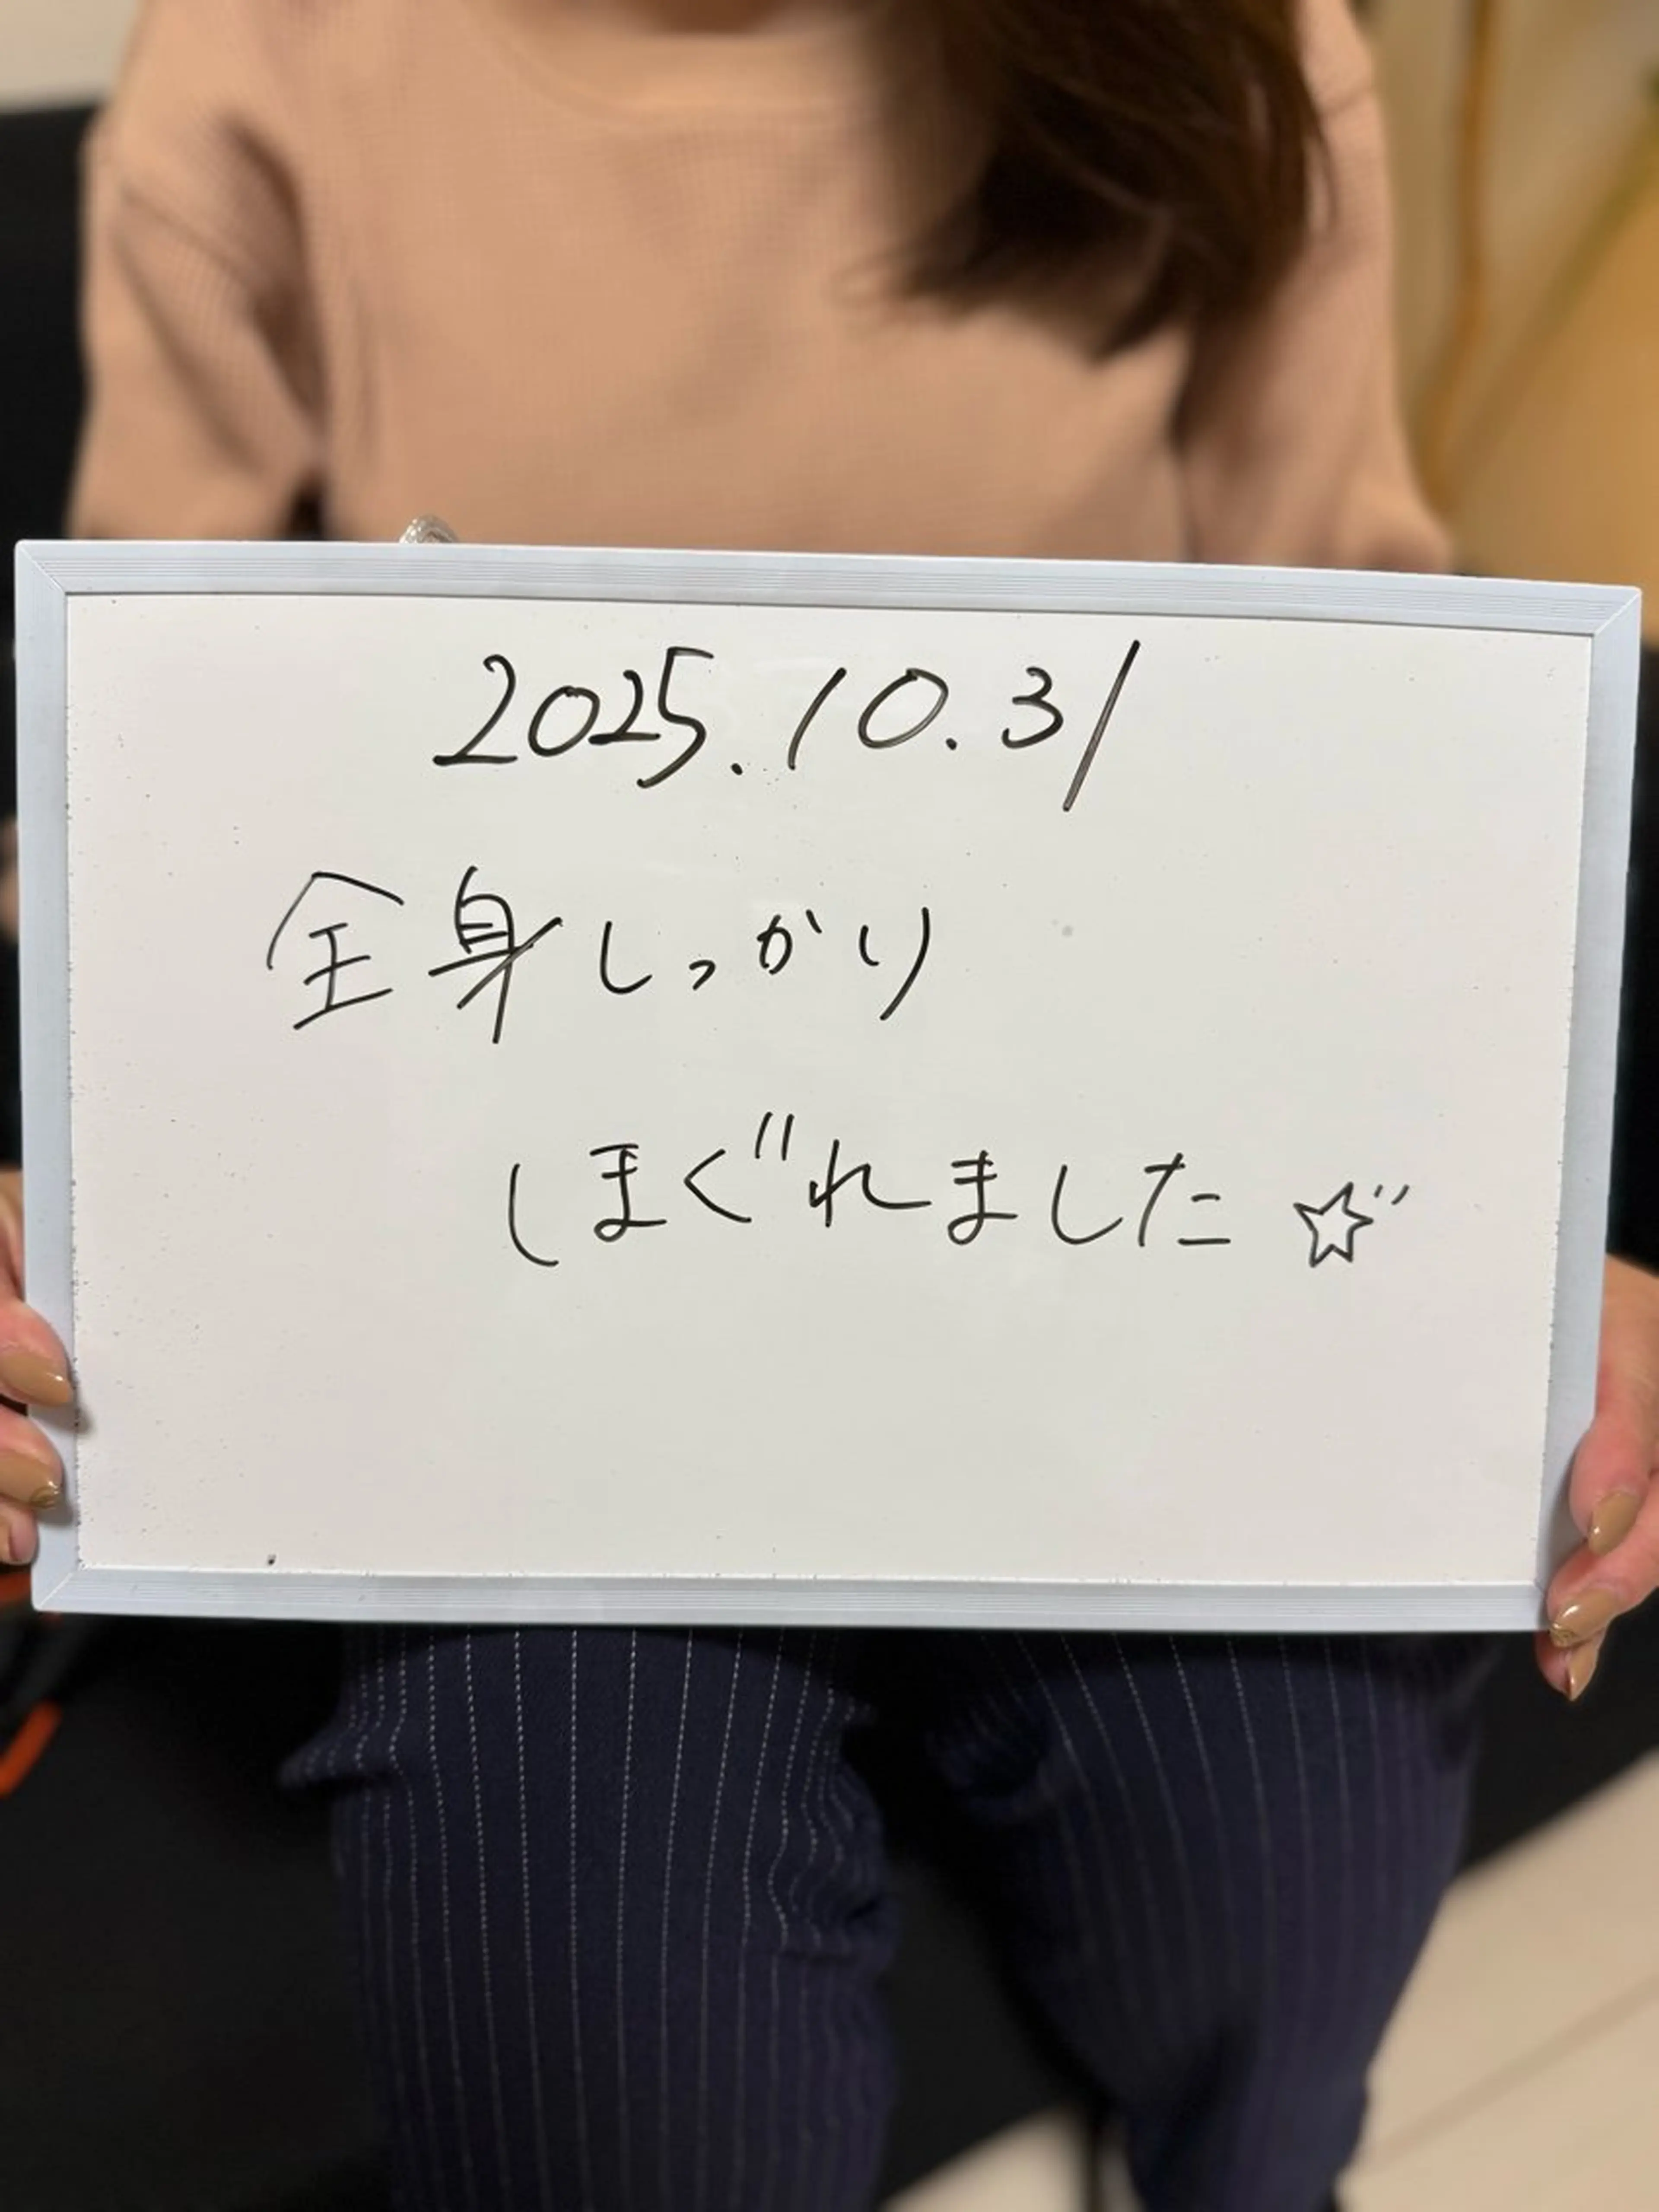 2025.10.31
全身しっかり
しまぐれました☆